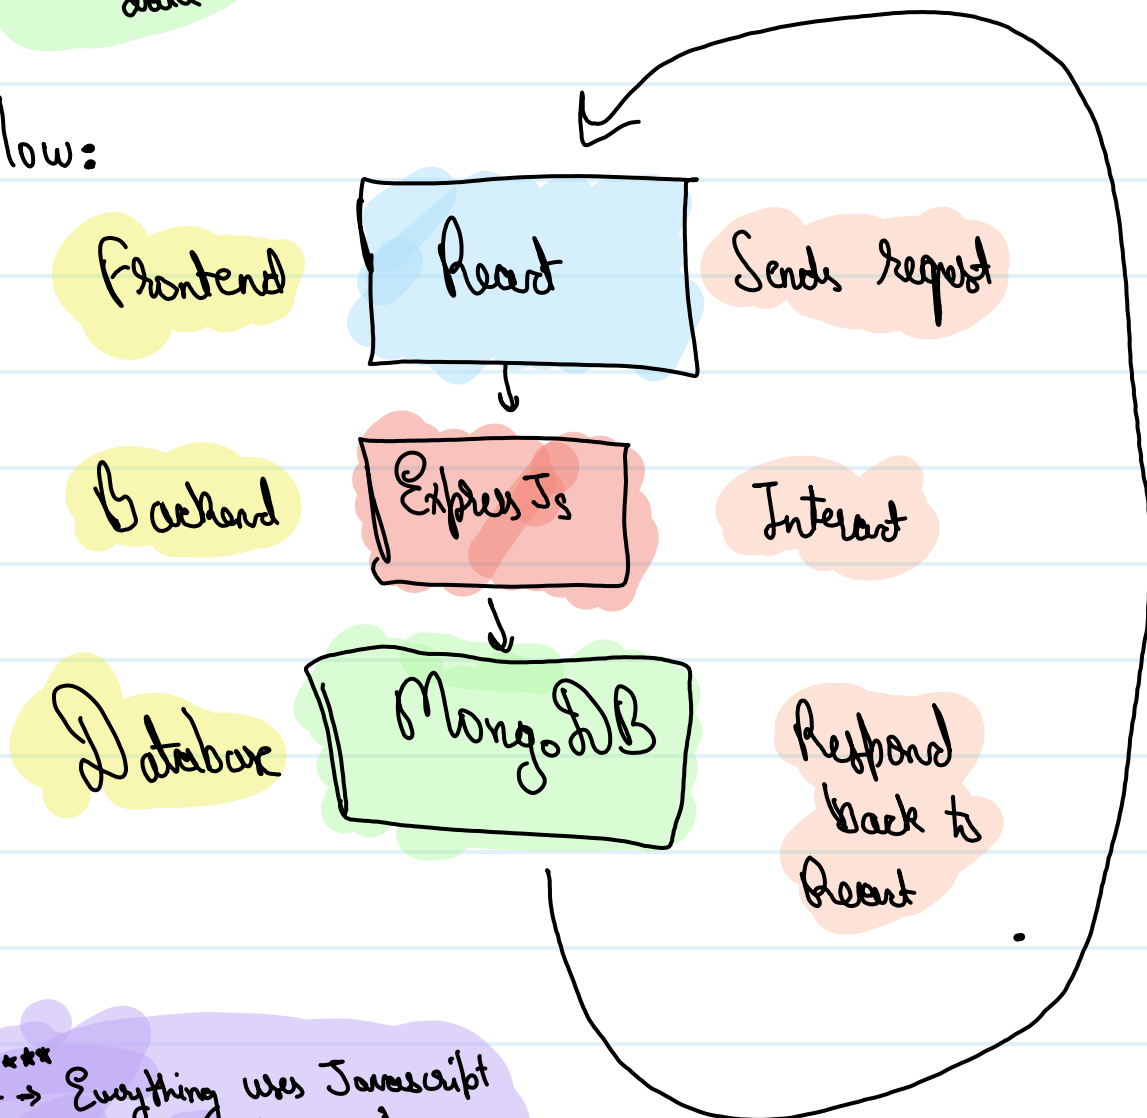 low:
Frontend React Sends reqest
Backend Express Js Interact
Database MongoDB Respond
back to
React
*** 
→ Everything uses Javascript